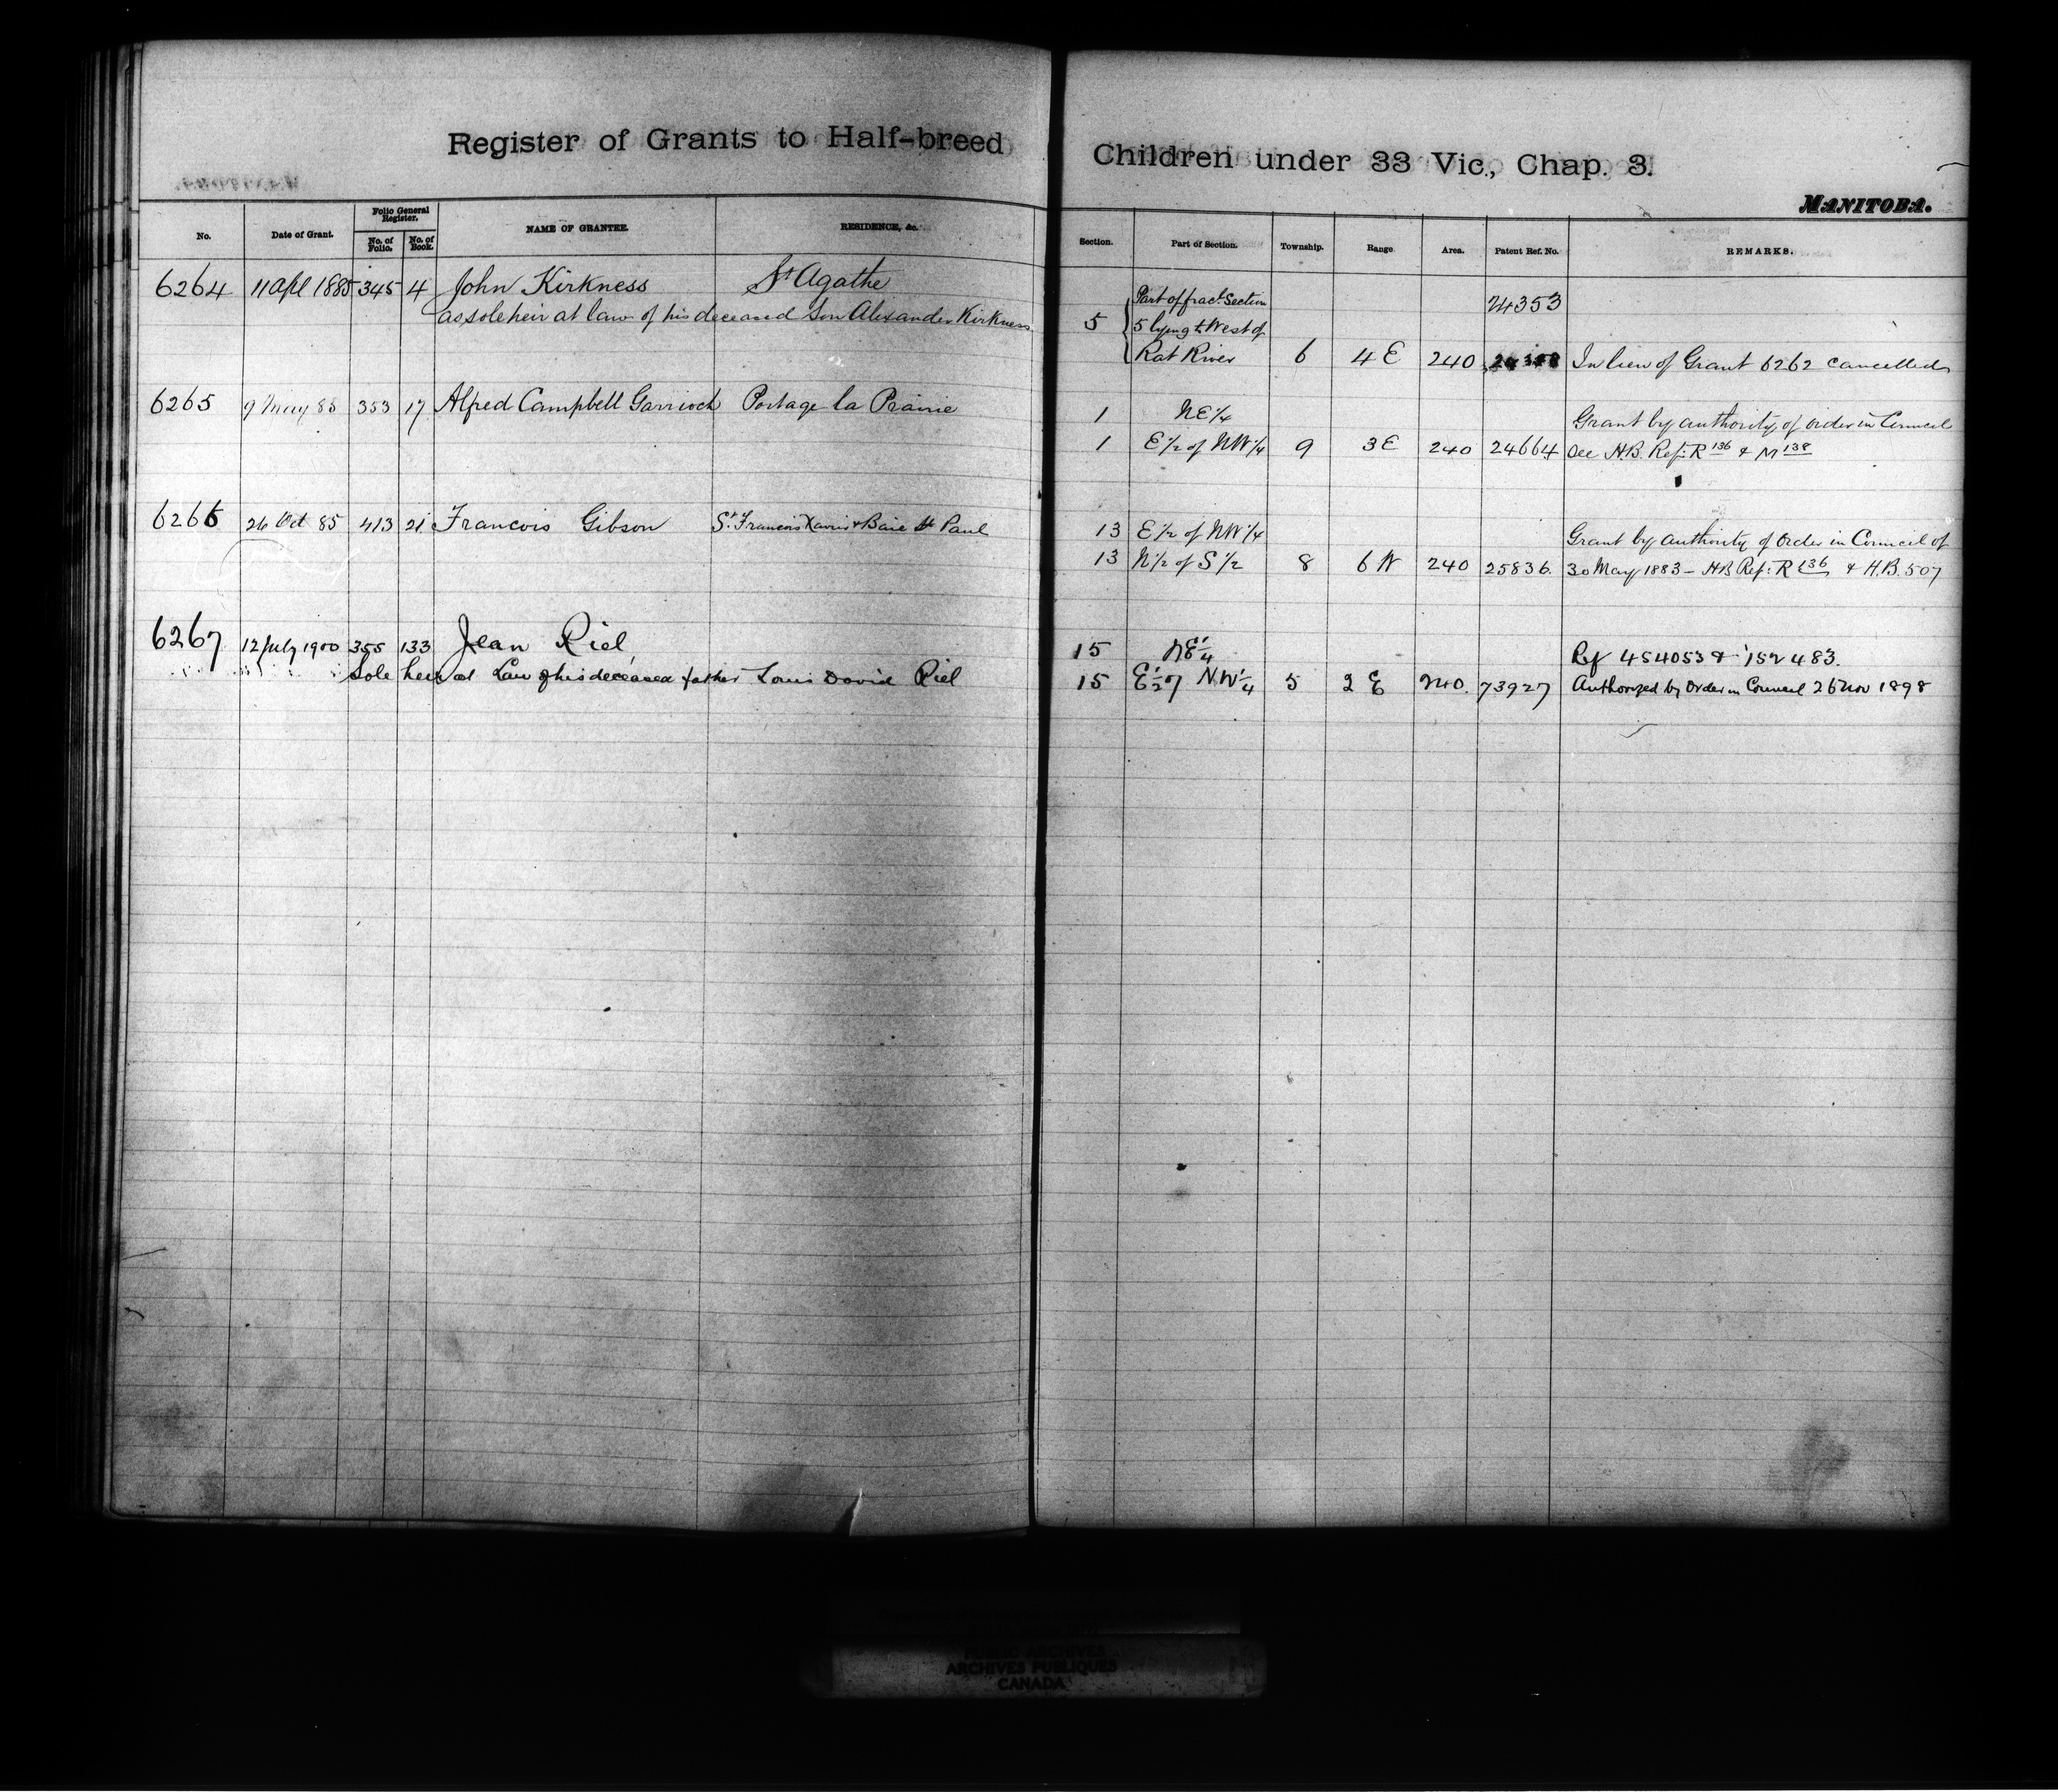 Register of Grants to Half-breed Children under 33 Vic., Chap. 3.
MANITOBA.
No. Date of Grant. Folio General Register. No. of Folio. No. of Book. NAME OF GRANTEE. RESIDENCE, &c. Section. Part of Section. Township. Range Area. Patent Ref. No. REMARKS.
6264 11 Apl 1885 345 4 John Kirkness St Agathe
as sole heir at law of his deceased Son Alexander Kirkness
Part of fracl. Section 24353
5 5 lying to West of
Rat River 6 4 E 240 In lieu of Grant 6262 cancelled
6265 9 May 85 353 17 Alfred Campbell Garrioch Portage la Prairie 1 NE 1/4 Grant by authority of order in Council
1 E 1/2 of NW 1/4 9 3 E 240 24664 See H.B. Ref: R 136 & M 138
6266 26 Oct 85 413 21 Francois Gibson St. Francois Xavier & Baie St Paul 13 E 1/2 of NW 1/4 Grant by authority of Order in Council of
13 N 1/2 of S 1/2 8 6 W 240 25836. 30 May 1883 - HB Ref: R 136 & H.B. 507
6267 12 July 1900 355 133 Jean Riel, 15 NE 1/4 Ref 454053 & 152483.
Sole heir at Law of his deceased father Louis David Riel 15 E 1/2 of N.W 1/4 5 2 E 240. 73927 Authorized by Order in Council 26 Nov 1898
PUBLIC ARCHIVES
ARCHIVES PUBLIQUES
CANADA